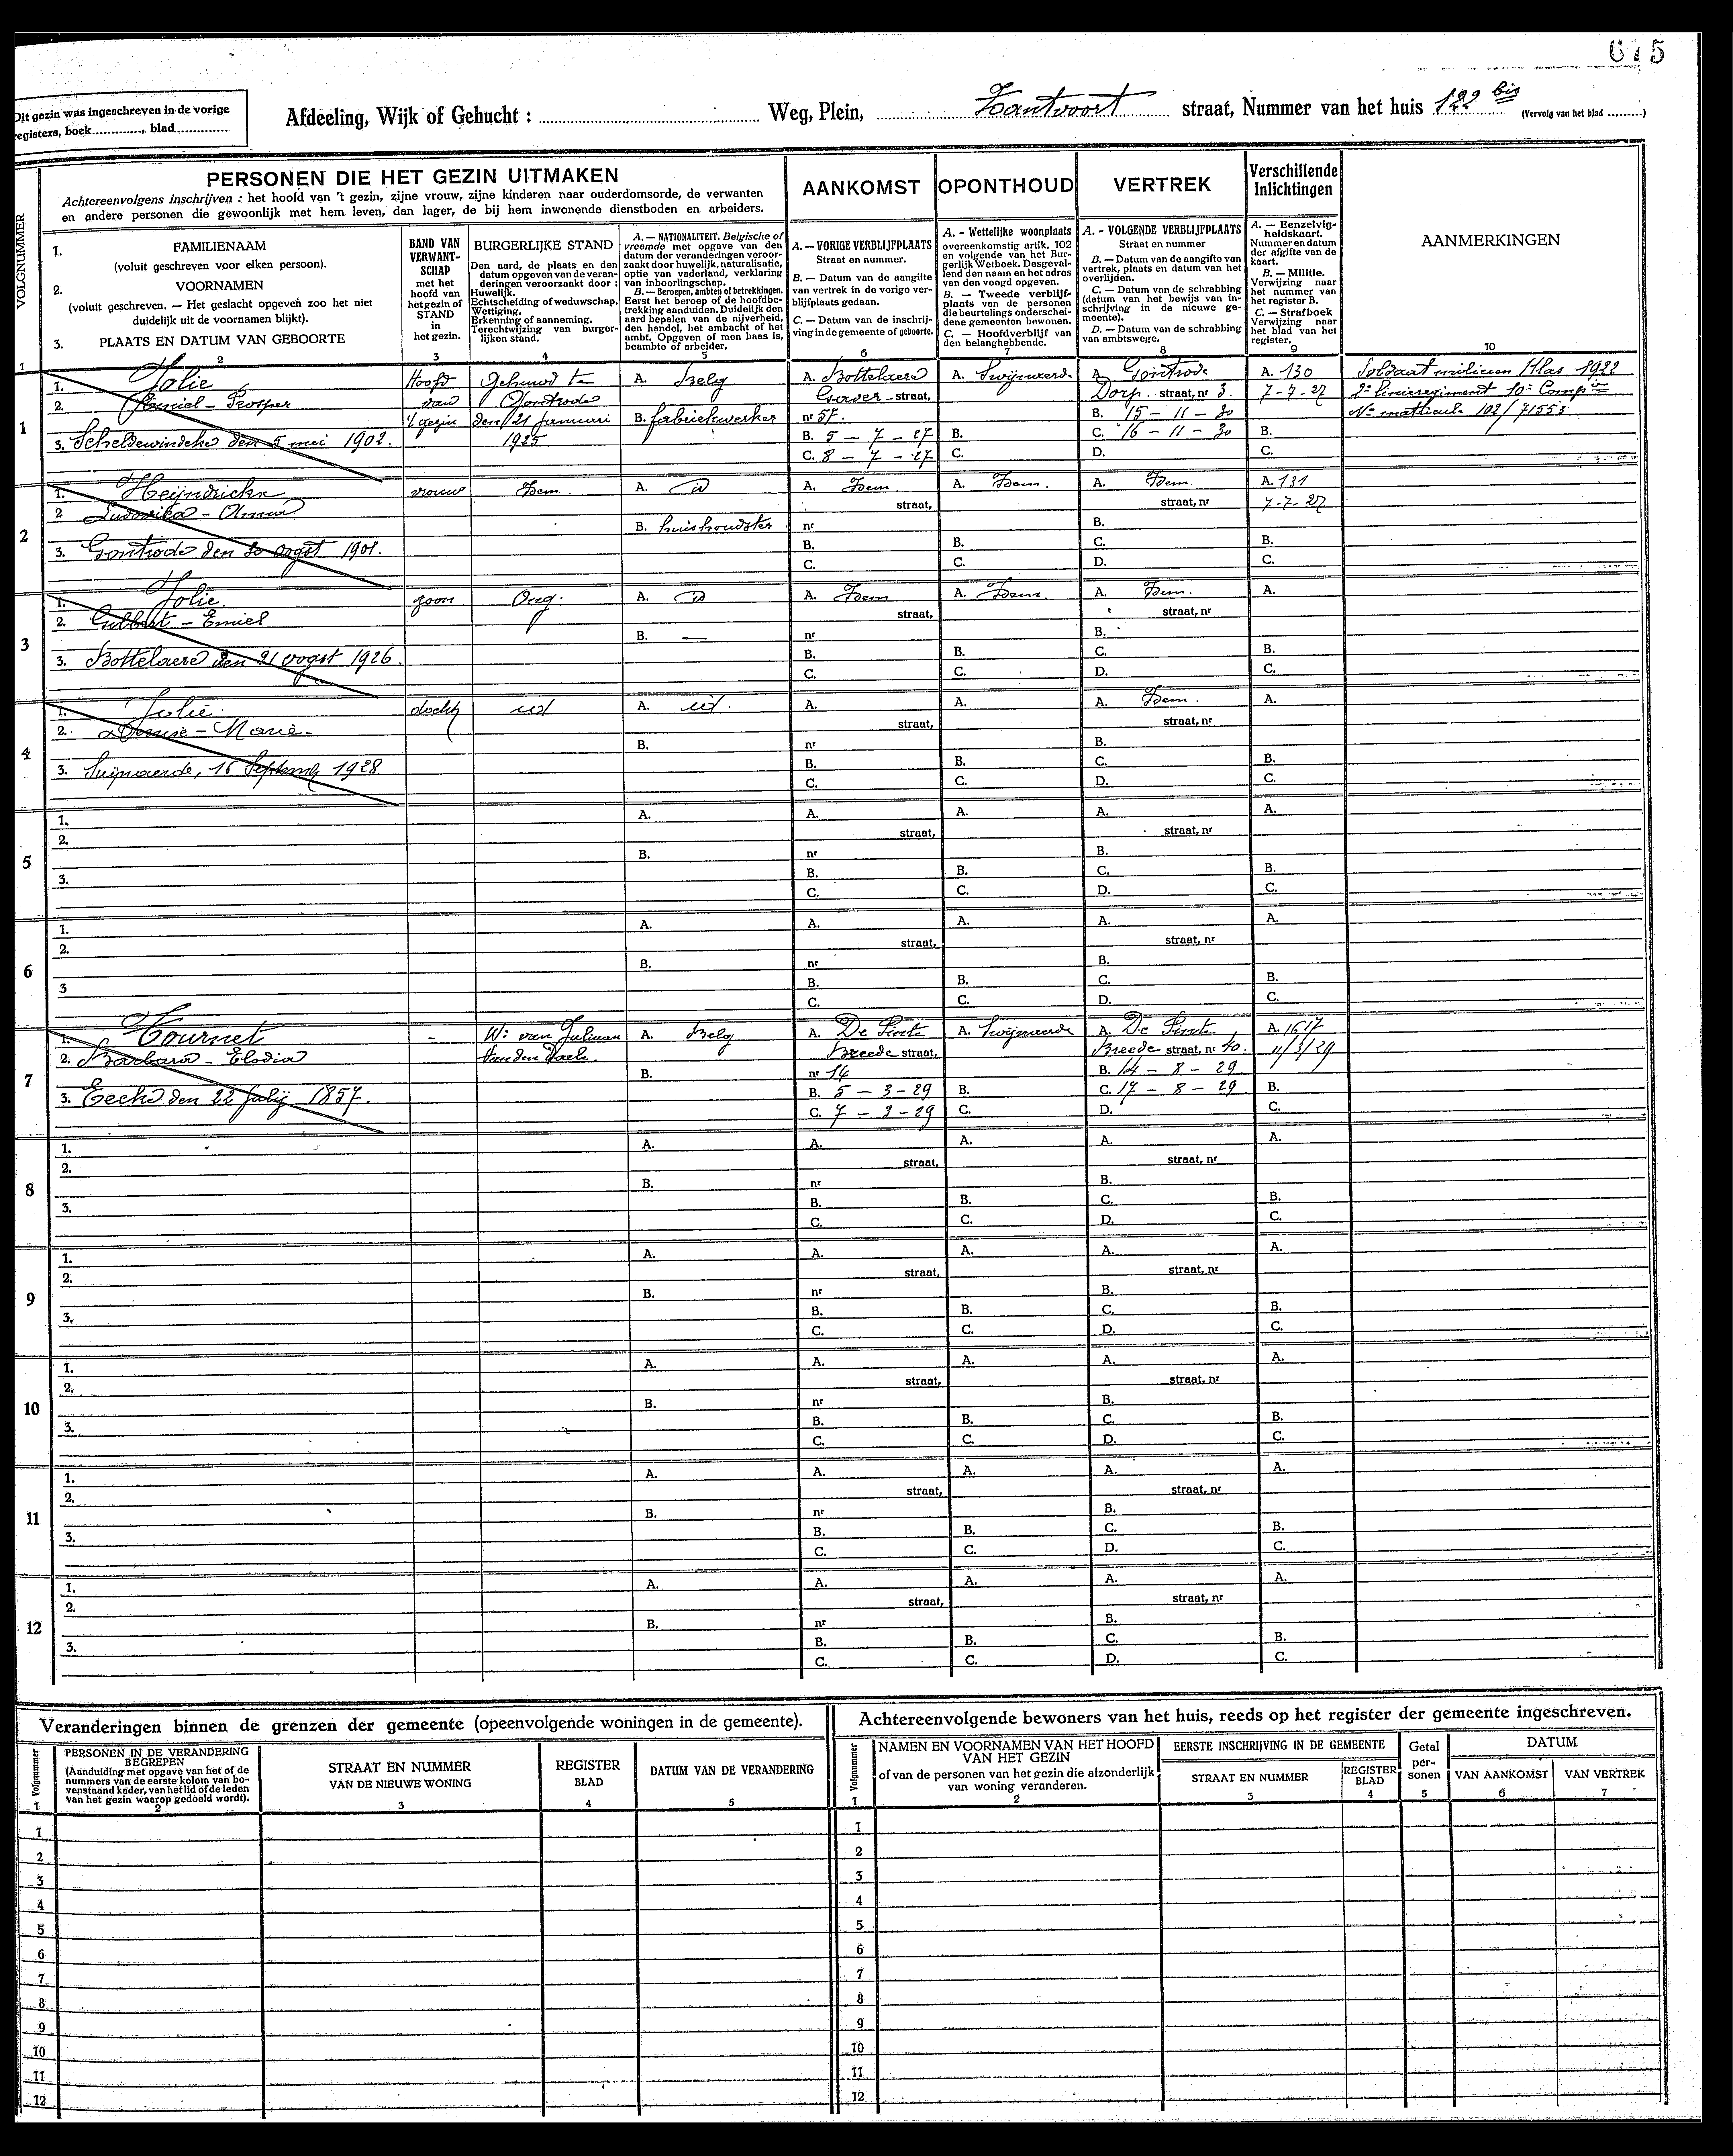 675
Dit gezin was ingeschreven in de vorige
registers, boek............, blad..............
Afdeeling, Wijk of Gehucht : ........ Weg, Plein, Zantvoort straat, Nummer van het huis 122 bis (Vervolg van het blad .........)
VOLGNUMMER
PERSONEN DIE HET GEZIN UITMAKEN
Achtereenvolgens inschrijven : het hoofd van 't gezin, zijne vrouw, zijne kinderen naar ouderdomsorde, de verwanten
en andere personen die gewoonlijk met hem leven, dan lager, de bij hem inwonende dienstboden en arbeiders.
1. FAMILIENAAM
(voluit geschreven voor elken persoon).
2. VOORNAMEN
(voluit geschreven. — Het geslacht opgeven zoo het niet
duidelijk uit de voornamen blijkt).
3. PLAATS EN DATUM VAN GEBOORTE
2
BAND VAN
VERWANT-
SCHAP
met het
hoofd van
het gezin of
STAND
in
het gezin.
3
BURGERLIJKE STAND
Den aard, de plaats en den
datum opgeven van de veran-
deringen veroorzaakt door :
Huwelijk.
Echtscheiding of weduwschap.
Wettiging.
Erkenning of aanneming.
Terechtwijzing van burger-
lijken stand.
4
A. — NATIONALITEIT. Belgische of
vreemde met opgave van den
datum der veranderingen veroor-
zaakt door huwelijk, naturalisatie,
optie van vaderland, verklaring
van inboorlingschap.
B. — Beroepen, ambten of betrekkingen.
Eerst het beroep of de hoofdbe-
trekking aanduiden. Duidelijk den
aard bepalen van de nijverheid,
den handel, het ambacht of het
ambt. Opgeven of men baas is,
beambte of arbeider.
5
AANKOMST
A. — VORIGE VERBLIJFPLAATS
Straat en nummer.
B. — Datum van de aangifte
van vertrek in de vorige ver-
blijfplaats gedaan.
C. — Datum van de inschrij-
ving in de gemeente of geboorte.
6
OPONTHOUD
A. - Wettelijke woonplaats
overeenkomstig artik. 102
en volgende van het Bur-
gerlijk Wetboek. Desgeval-
lend den naam en het adres
van den voogd opgeven.
B. — Tweede verblijf-
plaats van de personen
die beurtelings onderschei-
dene gemeenten bewonen.
C. — Hoofdverblijf van
den belanghebbende.
7
VERTREK
A. - VOLGENDE VERBLIJFPLAATS
Straat en nummer
B. — Datum van de aangifte van
vertrek, plaats en datum van het
overlijden.
C. — Datum van de schrabbing
(datum van het bewijs van in-
schrijving in de nieuwe ge-
meente).
D. — Datum van de schrabbing
van ambtswege.
8
Verschillende
Inlichtingen
A. — Eenzelvig-
heidskaart.
Nummer en datum
der afgifte van de
kaart.
B. — Militie.
Verwijzing naar
het nummer van
het register B.
C. — Strafboek
Verwijzing naar
het blad van het
register.
9
AANMERKINGEN
10
1
1. Jolie
2. Emiel - Prosper
3. Scheldewindeke den 5 mei 1902.
Hoofd
van
't gezin
Gehuwd te
Gontrode
den 21 Januari
1925
A. Belg
B. fabriekwerker
A. Bottelaere
Gaver - straat,
nr 57.
B. 5 - 7 - 27
C. 8 - 7 - 27
A. Swijnaerde
B.
C.
A. Gontrode
Dorp straat, nr 3.
B. 15 - 11 - 30
C. 16 - 11 - 30
D.
A. 130
7-7-27
B.
C.
Soldaat milicien Klas 1922
2e Linieregiment 10e Compie
No matricule 102/71553
2
1. Heijndrickx
2 Ludovika - Anna
3. Gontrode den 30 oogst 1901.
vrouw
Idem.
A. id
B. huishoudster
A. Idem
straat,
nr
B.
C.
A. Idem.
B.
C.
A. Idem.
straat, nr
B.
C.
D.
A. 131
7-7-27
B.
C.
3
1. Jolie.
2. Gilbert - Emiel
3. Bottelaere den 21 oogst 1926.
zoon
Ong.
A. id
B. —
A. Idem
straat,
nr
B.
C.
A. Idem.
B.
C.
A. Idem.
straat, nr
B.
C.
D.
A.
B.
C.
4
1. Jolie.
2. Denise - Marie -
3. Swijnaerde, 16 Septemb 1928.
docht
id
A. id.
B.
A.
straat,
nr
B.
C.
A.
B.
C.
A. Idem.
straat, nr
B.
C.
D.
A.
B.
C.
5
1.
2.
3.
A.
B.
A.
straat,
nr
B.
C.
A.
B.
C.
A.
straat, nr
B.
C.
D.
A.
B.
C.
6
1.
2.
3
A.
B.
A.
straat,
nr
B.
C.
A.
B.
C.
A.
straat, nr
B.
C.
D.
A.
B.
C.
7
1. Tournet
2. Barbara - Elodia
3. Eecke den 22 Julij 1857.
-
We van Juliaan
Van den Daele.
A. Belg
B.
A. De Pinte
Breede straat,
nr 14
B. 5 - 3 - 29
C. 7 - 3 - 29
A. Swijnaerde
B.
C.
A. De Pinte,
Breede straat, nr 40.
B. 14 - 8 - 29
C. 17 - 8 - 29
D.
A. 1617
11/3/29
B.
C.
8
1.
2.
3.
A.
B.
A.
straat,
nr
B.
C.
A.
B.
C.
A.
straat, nr
B.
C.
D.
A.
B.
C.
9
1.
2.
3.
A.
B.
A.
straat,
nr
B.
C.
A.
B.
C.
A.
straat, nr
B.
C.
D.
A.
B.
C.
10
1.
2.
3.
A.
B.
A.
straat,
nr
B.
C.
A.
B.
C.
A.
straat, nr
B.
C.
D.
A.
B.
C.
11
1.
2.
3.
A.
B.
A.
straat,
nr
B.
C.
A.
B.
C.
A.
straat, nr
B.
C.
D.
A.
B.
C.
12
1.
2.
3.
A.
B.
A.
straat,
nr
B.
C.
A.
B.
C.
A.
straat, nr
B.
C.
D.
A.
B.
C.
Veranderingen binnen de grenzen der gemeente (opeenvolgende woningen in de gemeente).
Volgnummer
1
PERSONEN IN DE VERANDERING
BEGREPEN
(Aanduiding met opgave van het of de
nummers van de eerste kolom van bo-
venstaand kader, van het lid of de leden
van het gezin waarop gedoeld wordt).
2
STRAAT EN NUMMER
VAN DE NIEUWE WONING
3
REGISTER
BLAD
4
DATUM VAN DE VERANDERING
5
1
2
3
4
5
6
7
8
9
10
11
12
Achtereenvolgende bewoners van het huis, reeds op het register der gemeente ingeschreven.
Volgnummer
1
NAMEN EN VOORNAMEN VAN HET HOOFD
VAN HET GEZIN
of van de personen van het gezin die afzonderlijk
van woning veranderen.
2
EERSTE INSCHRIJVING IN DE GEMEENTE
STRAAT EN NUMMER
3
REGISTER
BLAD
4
Getal
per-
sonen
5
DATUM
VAN AANKOMST
6
VAN VERTREK
7
1
2
3
4
5
6
7
8
9
10
11
12